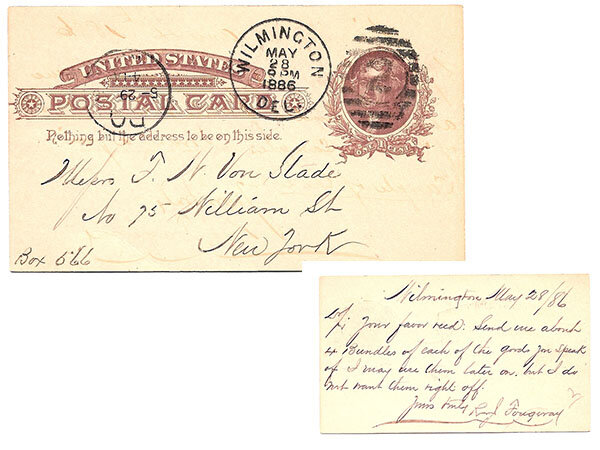 UNITED STATES
POSTAL CARD
Nothing but the address to be on this side.
WILMINGTON
MAY
28
PM
1886
DEL.
5-29
Messrs F. W. Von Stade
No 75 William St
New York
Box 566
Wilmington May 28/86
Your favor recd. Send me about
4 Bundles of each of the goods you speak
of I may use them later on, but I do
not want them right off.
Yours truly